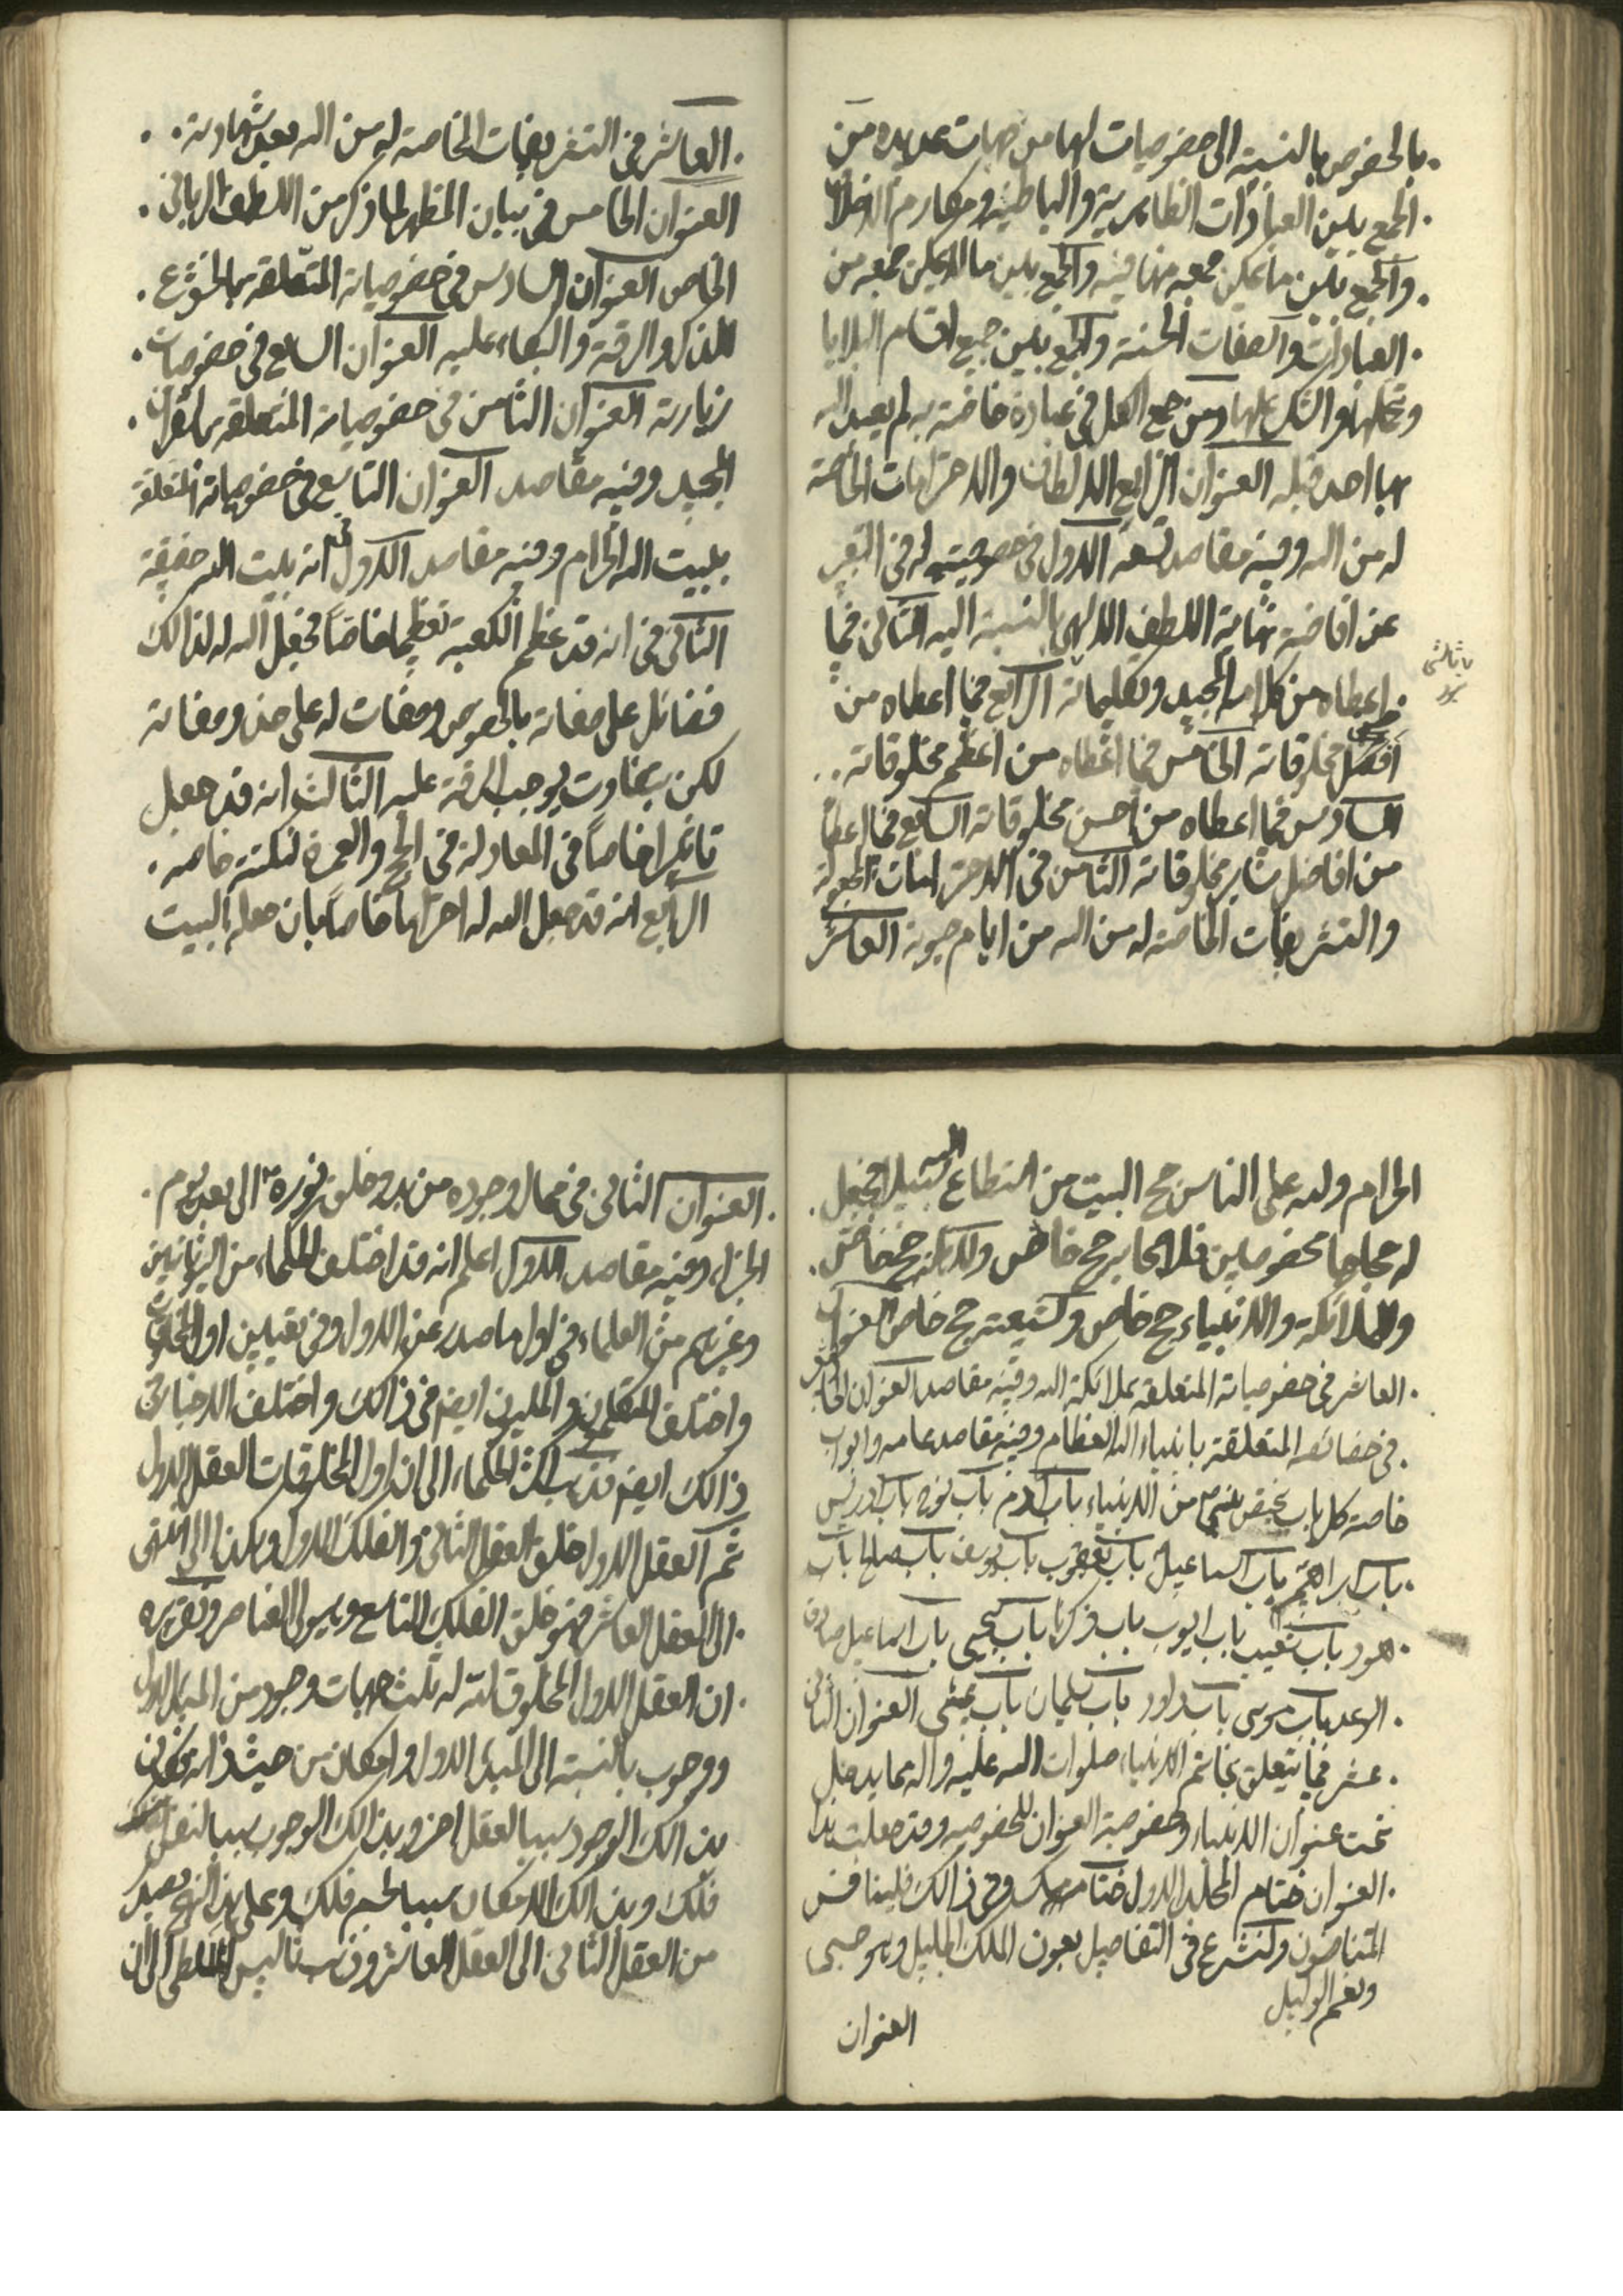 بالخصوص بالنسبة الى خصوصيات لها من جهات عديده من
الجمع بين العبادات الظاهرية والباطنية ومكارم الاخلاق
والجمع بين ما يمكن جمعه منها فيه والجمع بين ما لا يمكن جمعه من
العبادات والصفات الحسنة والجمع بين جميع اقسام البلايا
وتحملها والشكر عليها ومن جمع الكل فى عبادة خاصة به لم يعبد الله
بها احد قبله العنوان الرابع الالطاف والاحترامات الخاصة
له من الله وفيه مقاصد تسعه الاول فى خصوصيته له فى التعبير
عن افاضة نهاية اللطف الالهى بالنسبة اليه الثانى فيما
اعطاه من كلامه المجيد وتكليماته الرابع فيما اعطاه من
يا ثالثى
افضل مخلوقاته الخامس فيما اعطاه من اعظم مخلوقاته
السادس فيما اعطاه من احسن مخلوقاته السابع فيما اعطاه
من افاضل ساير مخلوقاته الثامن فى الاحترامات المجعولة
والتشريفات الخاصة له من الله من ايام حيوته العاشر
العاشر فى التشريفات الخاصة له من الله بعد شهادته
العنوان الخامس فى بيان المظهر لما ذكر من اللطف الربانى
الخاص العنوان السادس فى خصوصياته المتعلقه بالخشوع
للذكر والرقة والبكاء عليه العنوان السابع فى خصوصيات
زيارته العنوان الثامن فى خصوصياته المتعلقه بالقرآن
المجيد وفيه مقاصد العنوان التاسع فى خصوصياته المتعلقة
ببيت الله الحرام وفيه مقاصد الاول فى انه بيت الله حقيقة
الثانى فى انه قد عظم الكعبة تعظيما خاصا فجعل الله له لذالك
فضائل على صفاته بالخصوص وصفات له على حذو صفاته
لكن بتفاوت يوجب الرقة عليه الثالث انه قد جعل
تاثيرا خاصا فى المعادلة فى الحج والعمرة لنكتة خاصه
الرابع انه قد جعل الله له احتراما خاصا بان جعله البيت
الحرام ولله على الناس حج البيت من استطاع اليه سبيلا فجعل
له حجاجا مخصوصين فلاصحابه حج خاص ولذلك حج خاص
وللملائكة والانبياء حج خاص ولشيعته حج خاص العنوان
العاشر فى خصوصياته المتعلقة بملائكة الله وفيه مقاصد العنوان الحادى عشر
فى خصائصه المتعلقة بانبياء الله العظام وفيه مقاصد عامه وابواب
خاصة كل باب يختص بنبى من الانبياء باب آدم باب نوح باب ادريس
باب ابراهيم باب اسماعيل باب يعقوب باب يوسف باب صالح باب
هود باب شعيب باب ايوب باب زكريا باب يحيى باب اسماعيل صادق
الوعد باب موسى باب داود باب سليمان باب عيسى العنوان الثانى
عشر فيما يتعلق بخاتم الانبياء صلوات الله عليه وآله مما يدخل
تحت عنوان الانبياء وخصوصية العنوان للخصوصيه وقد جعلت هذا
العنوان ختام المجلد الاول ختامه مسك وفى ذالك فليتنافس
المتنافسون ولنشرع فى التفاصيل بعون الملك الجليل وهو حسبى
ونعم الوكيل
العنوان
العنوان الثانى فى مجال وجوده من بدو خلق نوره الى بعد يوم
الجزاء وفيه مقاصد الاول اعلم انه قد اختلف الحكماء من اليونانيين
وغيرهم من العلماء فى اول ما صدر عن الاول وفى تعيين اول المخلوقات
واختلف المتكلمون والمليون ايضا فى ذالك واختلف الاخبار فى
ذالك ايضا فذهب اكثر الحكماء الى ان اول المخلوقات العقل الاول
ثم العقل الاول خلق العقل الثانى والفلك الاول وهكذا الى ان انتهى
الى العقل العاشر فهو خلق الفلك التاسع وهيولى العناصر وتقريره
ان العقل الاول المخلوق له ثلث جهات وجود من المبدا الاول
ووجوب بالنسبة الى المبدء الاول وامكان من حيث ذاته فكان
بذالك الوجود سببا لعقل اخر وبذالك الوجوب سببا لنفس
فلك وبذالك الامكان سببا لجسم فلك وعلى هذا النهج يصدر
من العقل الثانى الى العقل العاشر وذهب ثاليس الملطى الى ان